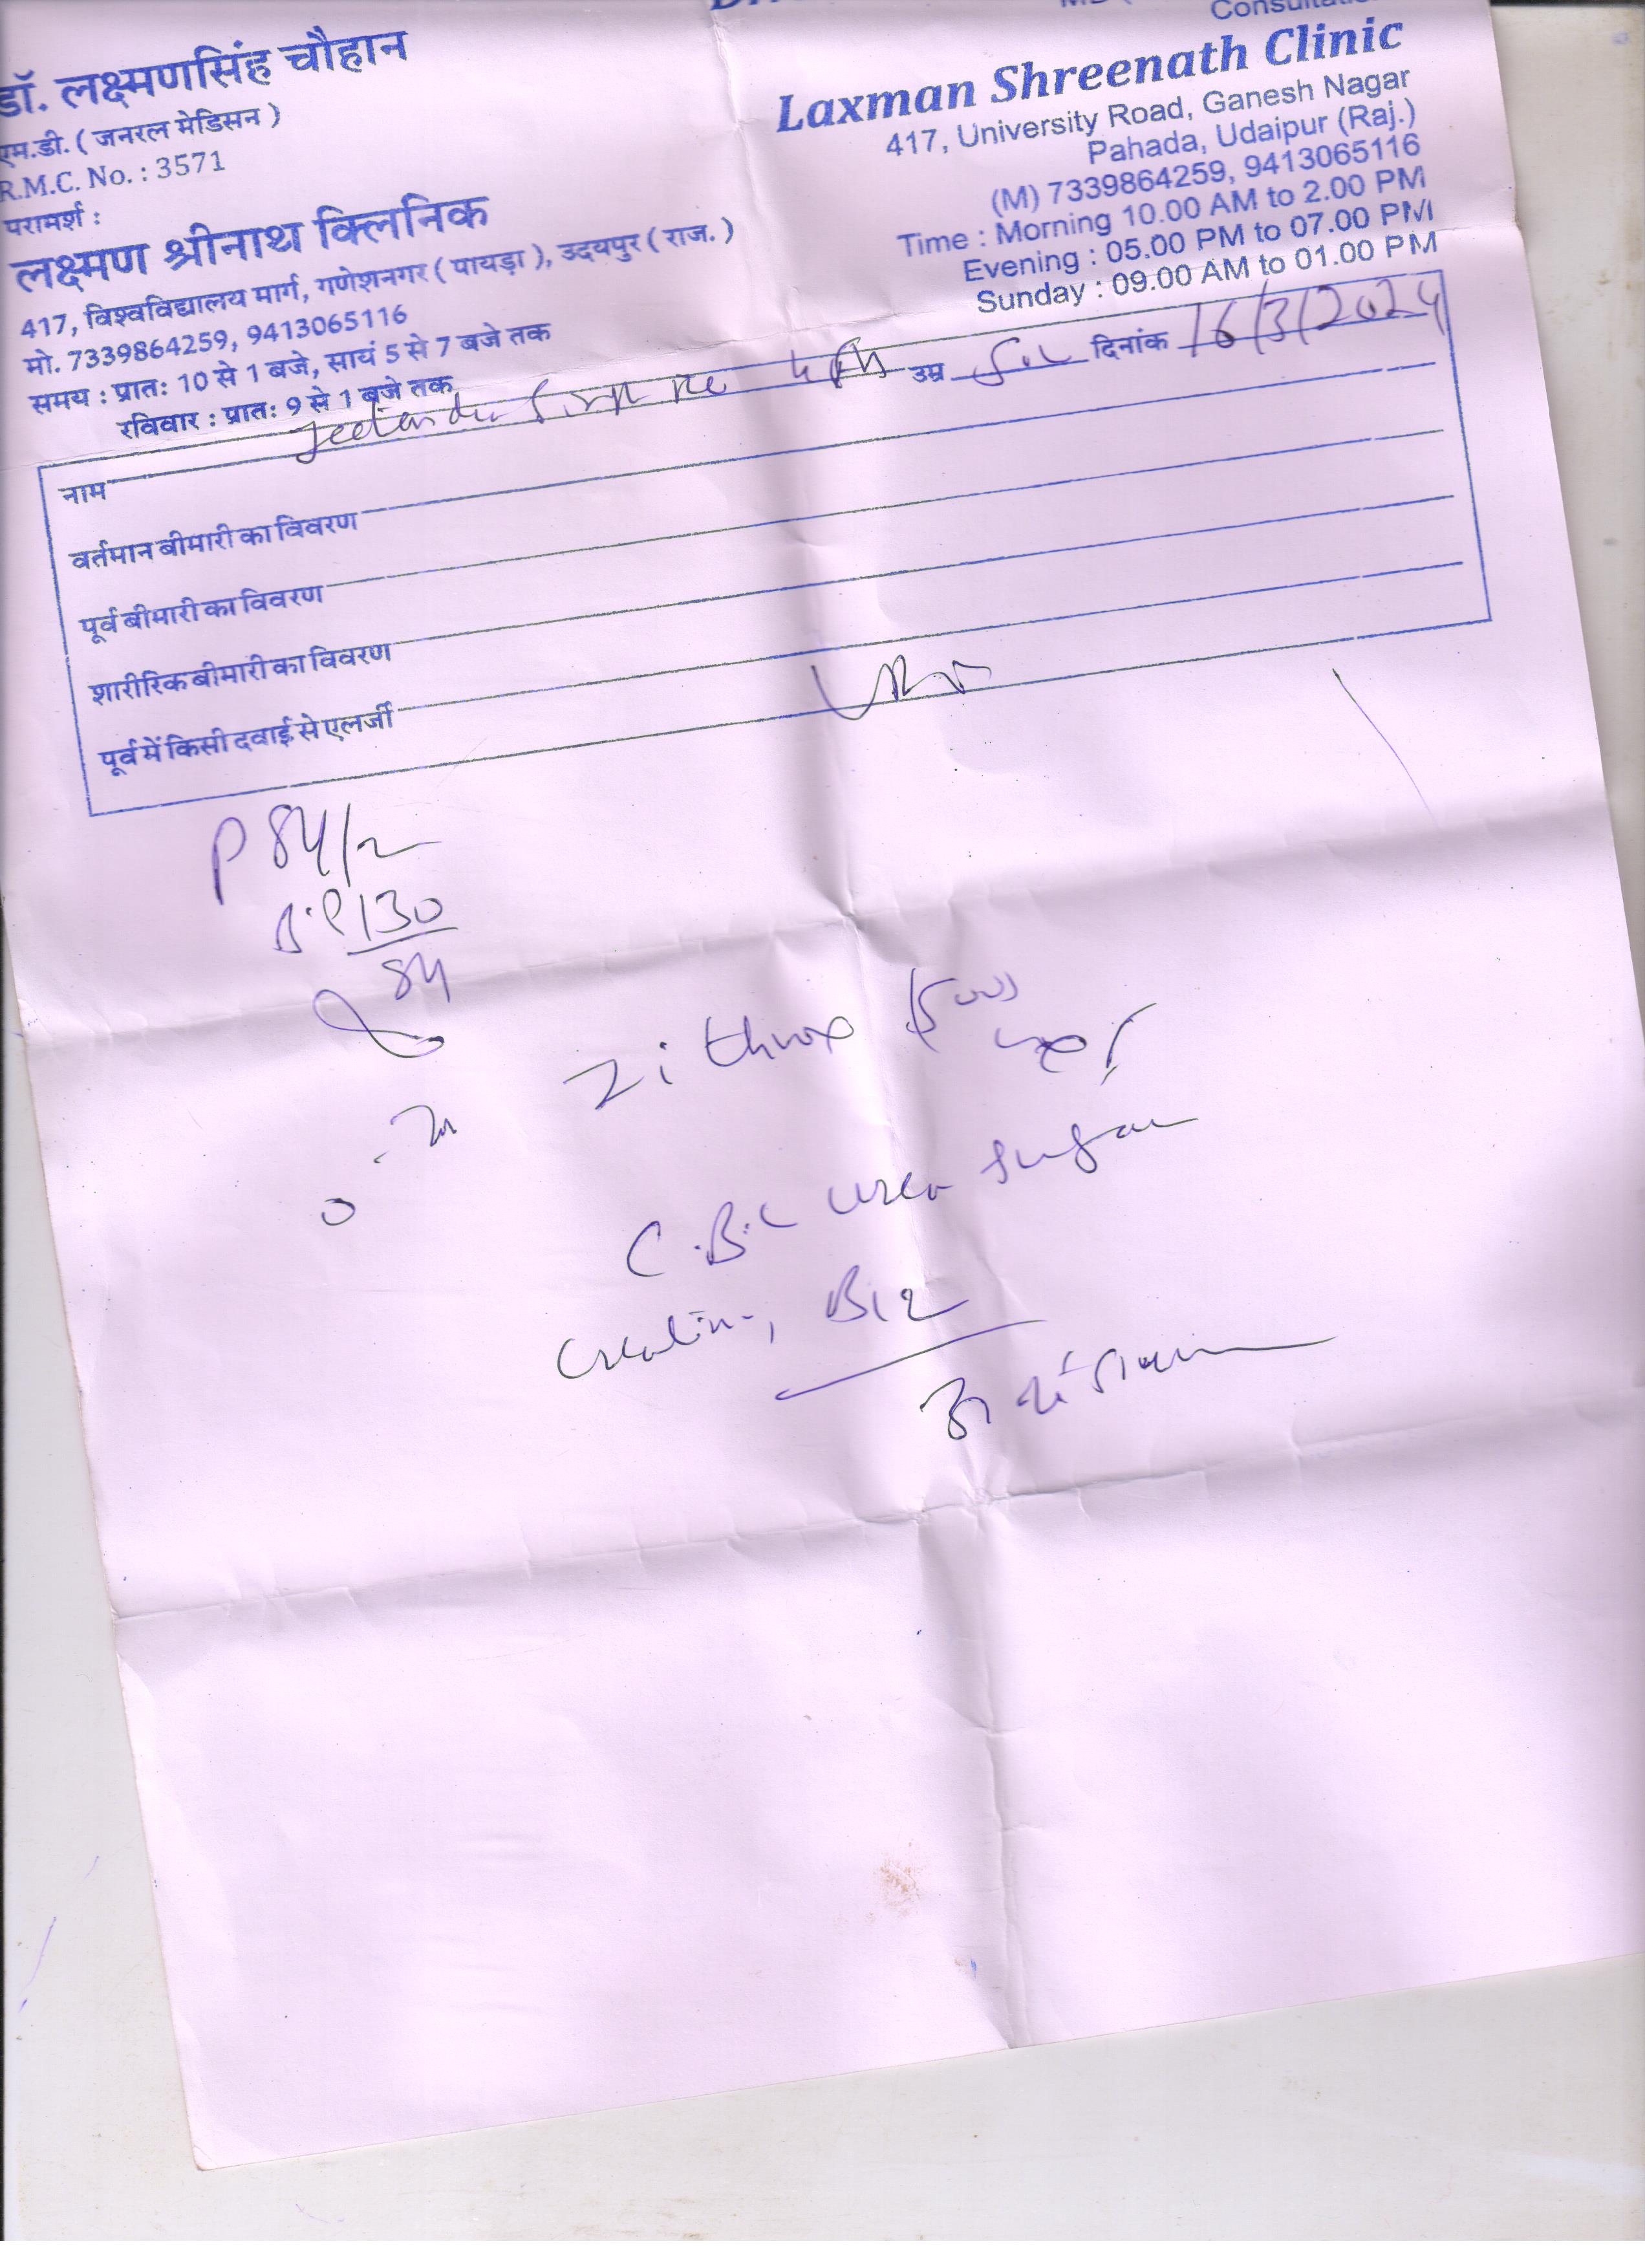 डॉ. लक्ष्मणसिंह चौहान
एम.डी. ( जनरल मेडिसन )
R.M.C. No. : 3571
परामर्श :
लक्ष्मण श्रीनाथ क्लिनिक
417, विश्वविद्यालय मार्ग, गणेशनगर ( पायड़ा ), उदयपुर ( राज. )
मो. 7339864259, 9413065116
समय : प्रातः 10 से 1 बजे, सायं 5 से 7 बजे तक
रविवार : प्रातः 9 से 1 बजे तक
Laxman Shreenath Clinic
417, University Road, Ganesh Nagar
Pahada, Udaipur (Raj.)
(M) 7339864259, 9413065116
Time : Morning 10.00 AM to 2.00 PM
Evening : 05.00 PM to 07.00 PM
Sunday : 09.00 AM to 01.00 PM
नाम उम्र दिनांक 16/3/2024
वर्तमान बीमारी का विवरण
पूर्व बीमारी का विवरण
शारीरिक बीमारी का विवरण
पूर्व में किसी दवाई से एलर्जी
P 84/
B.P 130
84
Zithrox 500
C.B.C urea sugar
B12